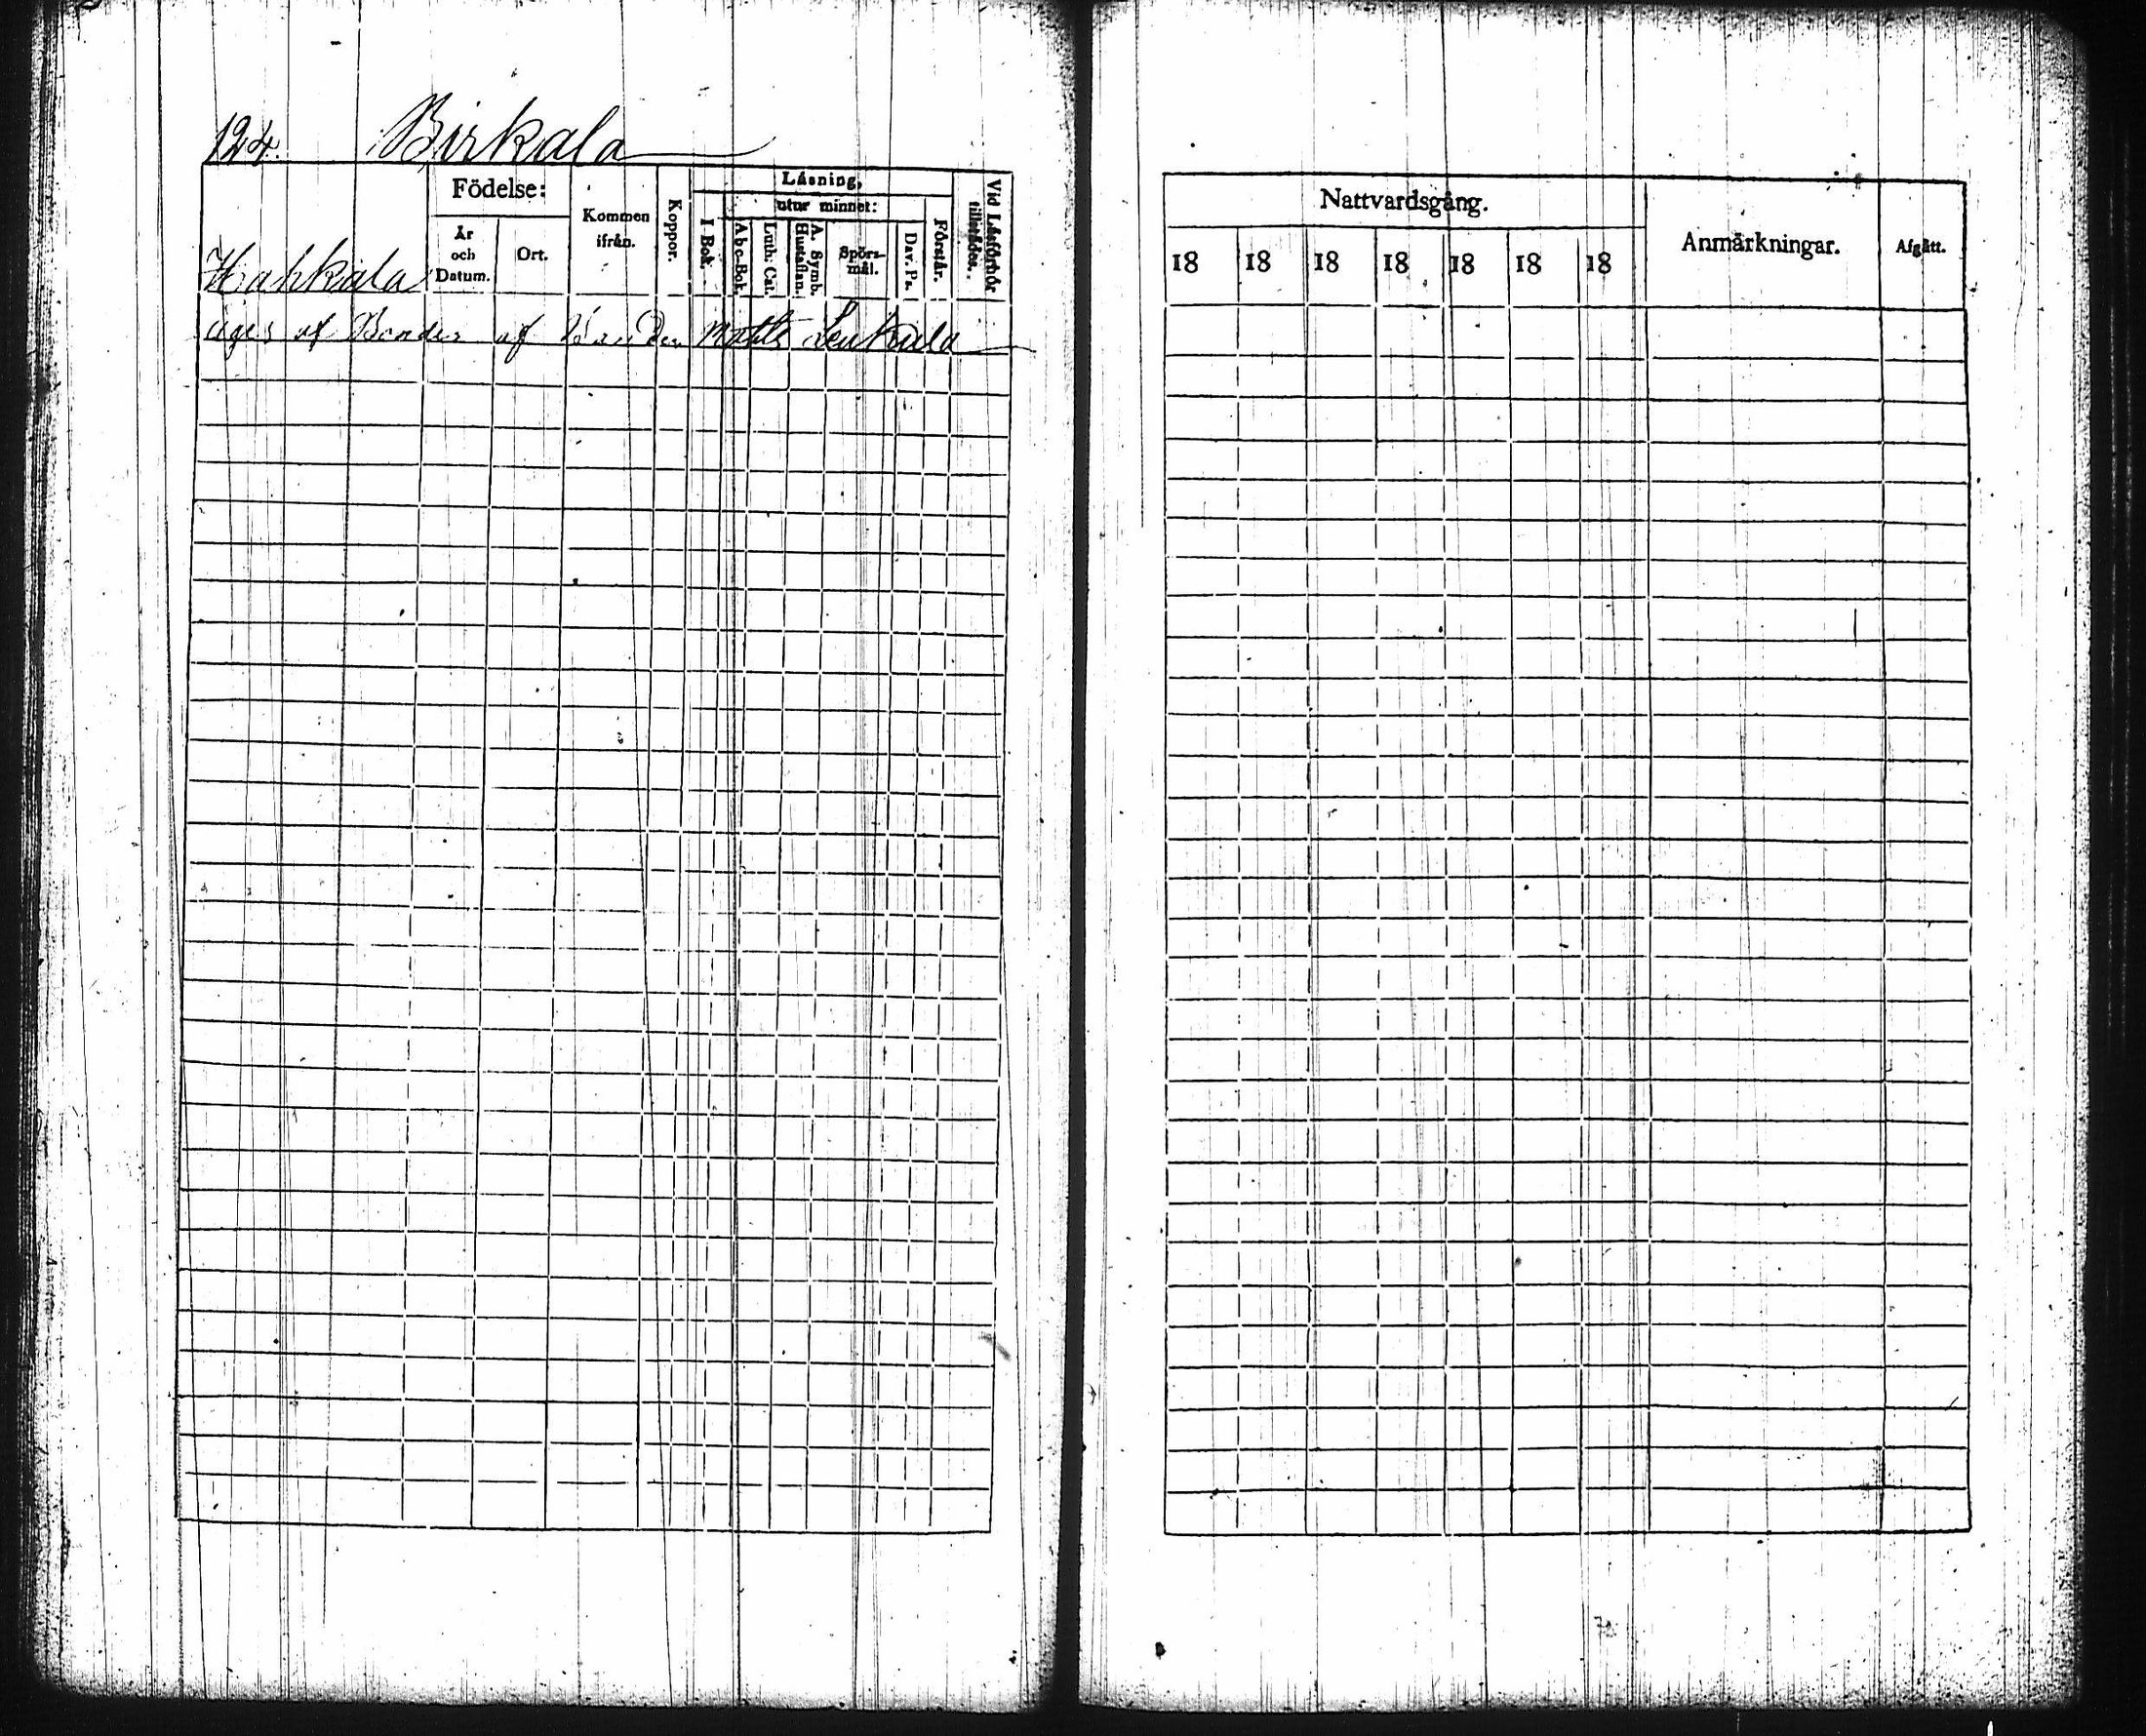 124. Birkala
Födelse:
År och Datum.
Ort.
Kommen ifrån.
Koppor.
Läsning,
utur minnet:
I Bok.
Abc-Bok.
Luth: Cat.
A. Symb. Hustaflan.
Spörs-mål.
Dav. Ps.
Förstår.
Vid Läsförhör tillstädes.
Hahkala
äges af Bonden af Bonden Matts Leukala
Nattvardsgång.
18 18 18 18 18 18 18
Anmärkningar.
Afgått.